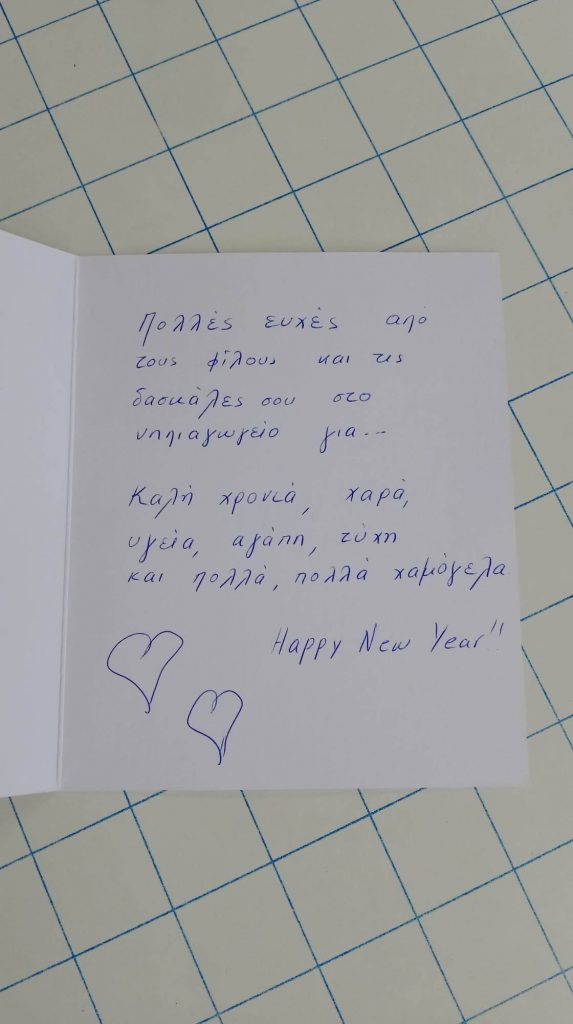 Πολλές ευχές από
τους φίλους και τις
δασκάλες σου στο
νηπιαγωγείο για...
Καλή χρονιά, χαρά,
υγεία, αγάπη, τύχη
και πολλά, πολλά χαμόγελα
Happy New Year!!